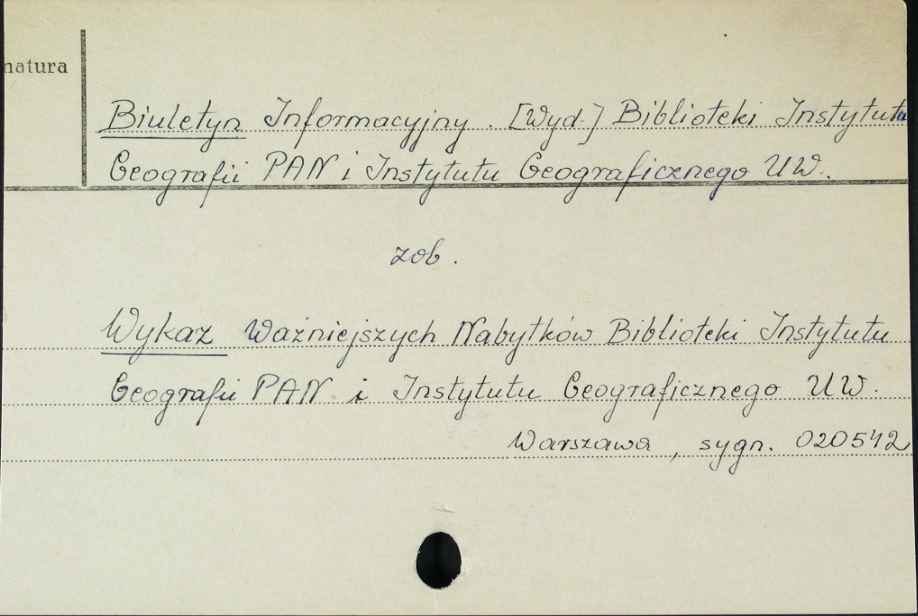 natura
Biuletyn Informacyjny. [Wyd.] Biblioteki Instytutu
Geografii PAN i Instytutu Geograficznego UW.
zob.
Wykaz Ważniejszych Nabytków Biblioteki Instytutu
Geografii PAN i Instytutu Geograficznego UW.
Warszawa, sygn. 020542